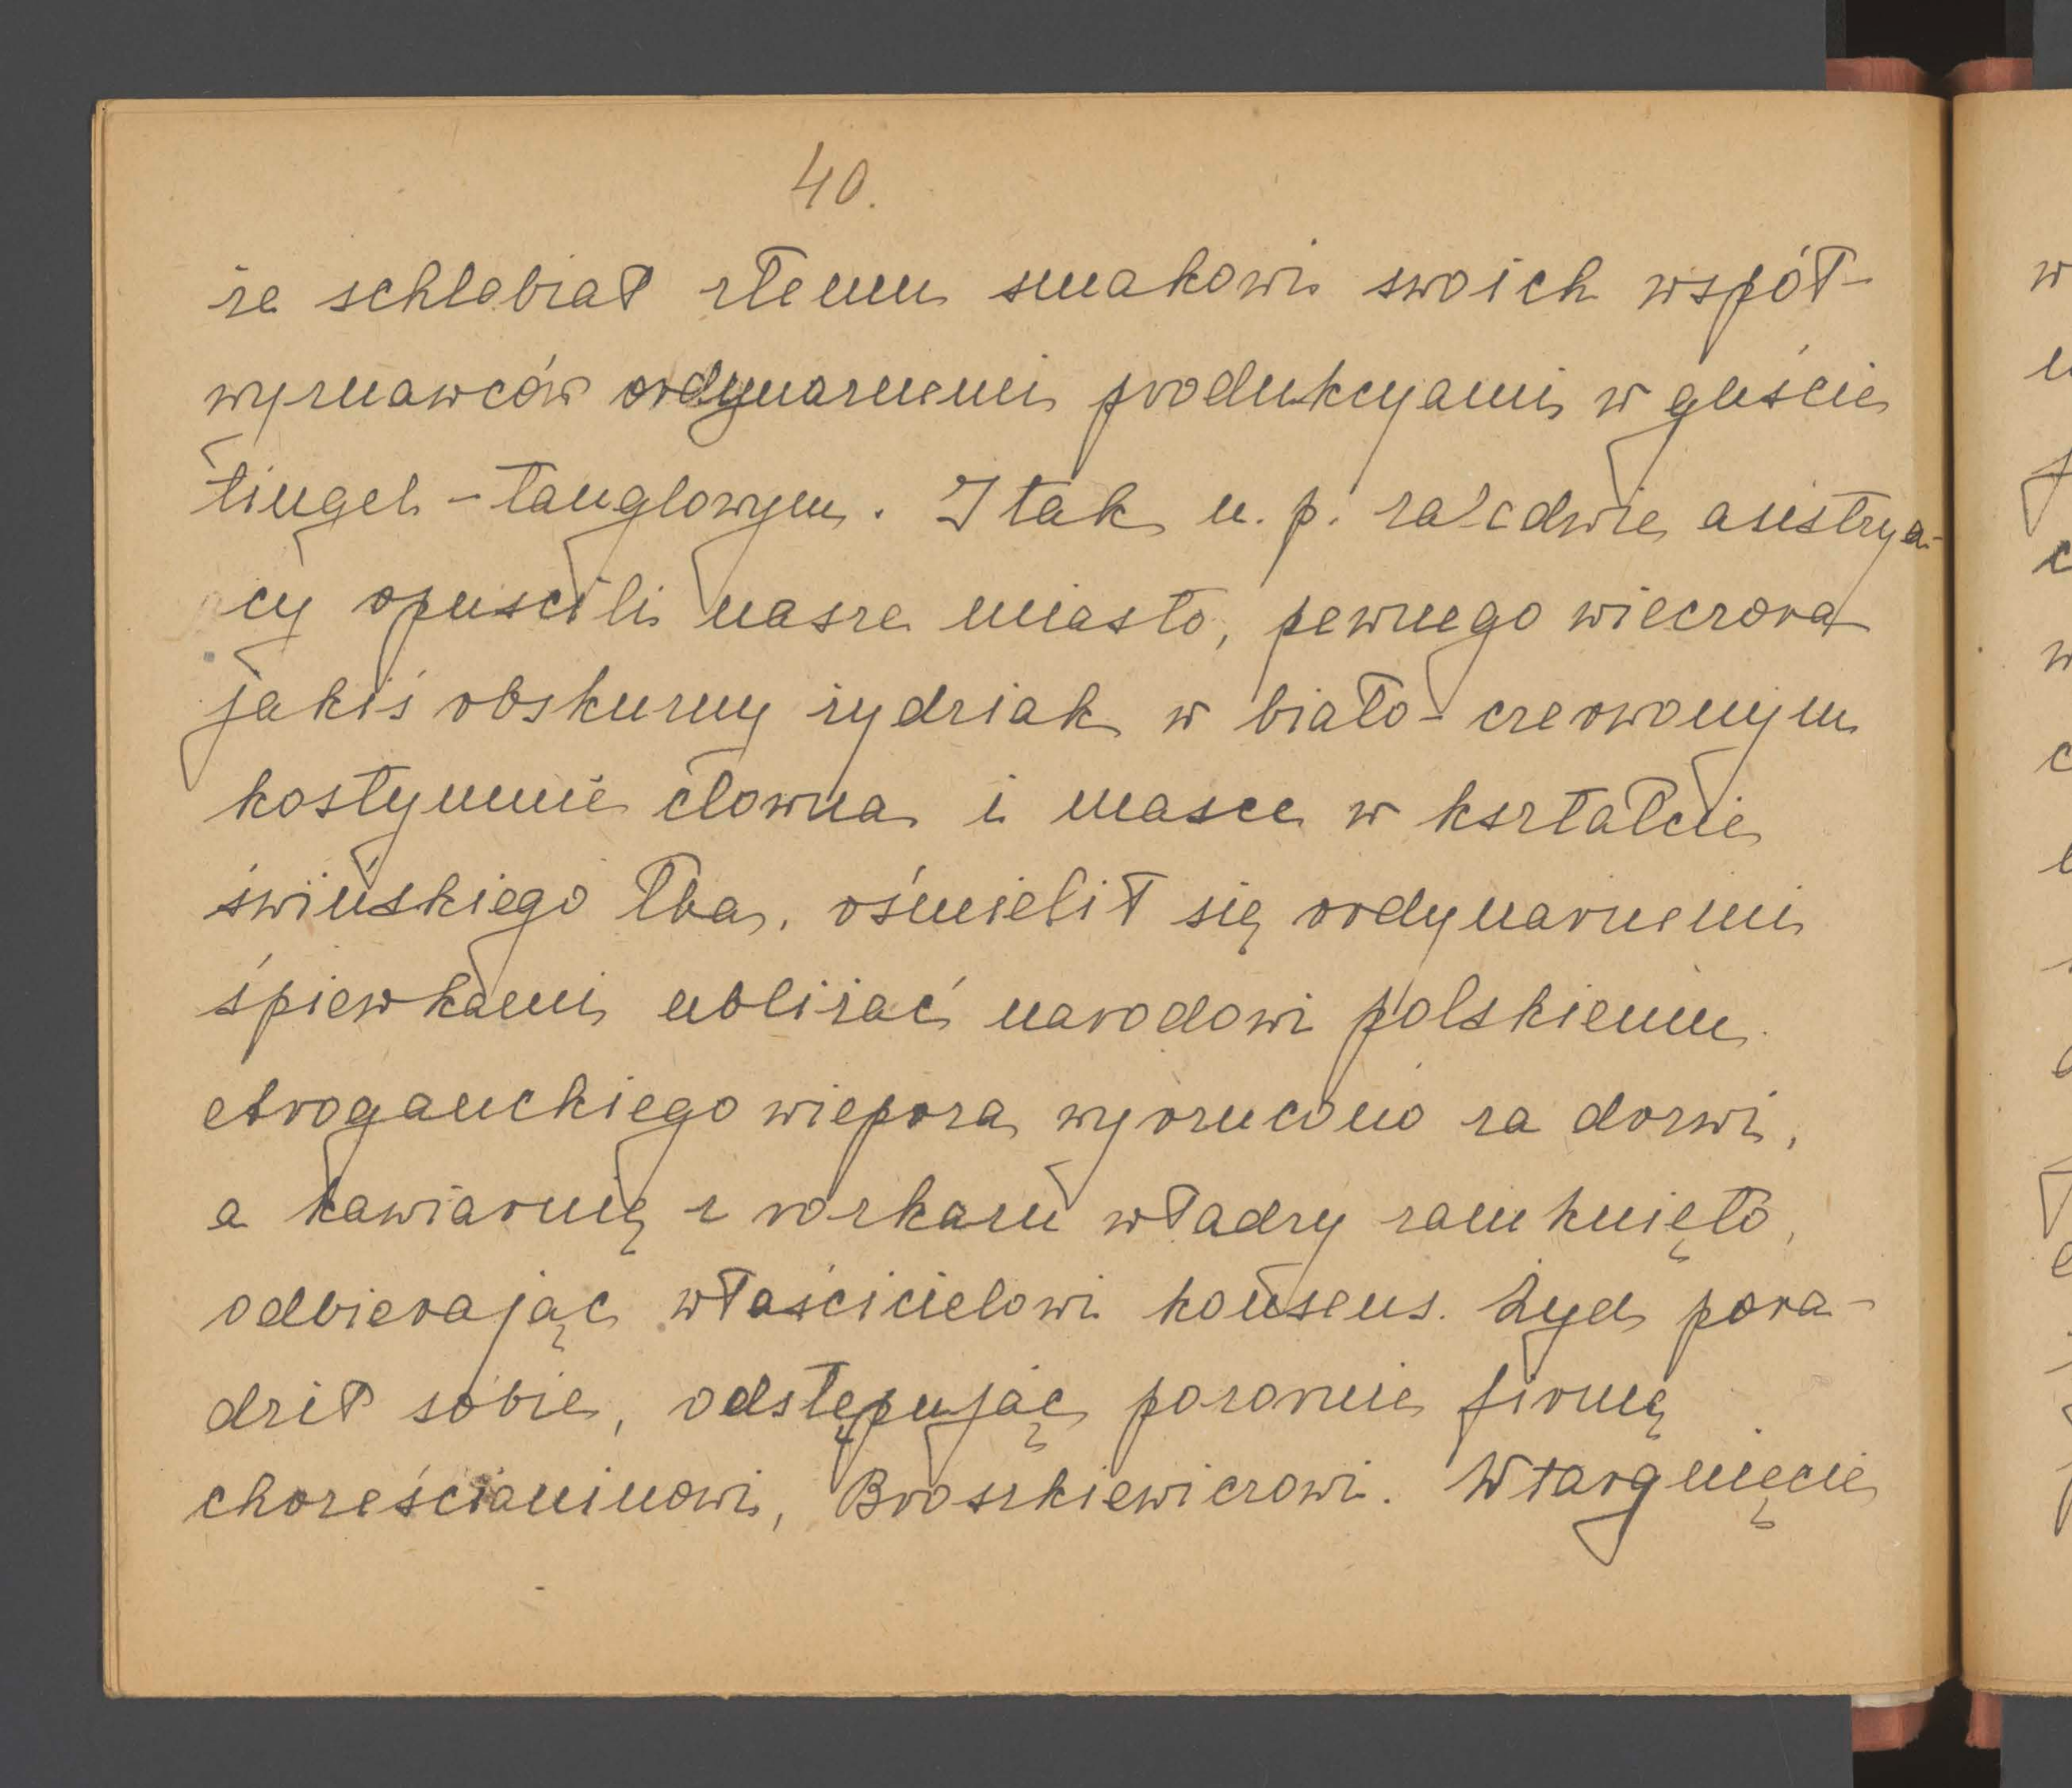 40.
że schlebiał złemu smakowi swoich współ-
wyznawców ordynarnemi produkcyami w guście
tingel-tanglowym. I tak n. p. zaledwie austrya-
cy opuścili nasze miasto, pewnego wieczora
jakiś obskurny żydziak w biało-czerwonym
kostyumie clowna i masce w kształcie
świńskiego łba, ośmielił się ordynarnemi
śpiewkami ubliżać narodowi polskiemu.
Aroganckiego wieprza wyrzucono za drzwi,
a kawiarnię z rozkazu władzy zamknięto,
odbierając właścicielowi konsens. Żyd pora-
dził sobie, odstępując pozornie firmę
chrześcianinowi, Broszkiewiczowi. Wtargnięcie